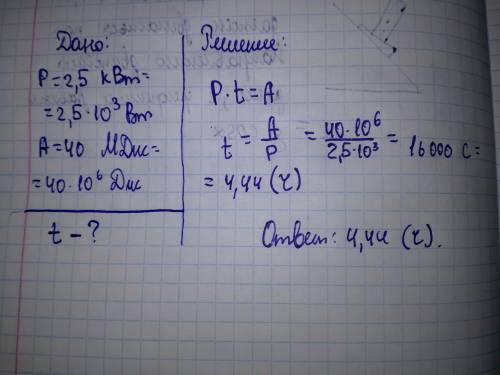 Дано:
P = 2,5 кВт =
= 2,5·10³ Вт
A = 40 МДж =
= 40·10⁶ Дж
t - ?
Решение:
P·t = A
t = A/P = 40·10⁶/2,5·10³ = 16000 с =
= 4,44 (ч)
Ответ: 4,44 (ч).